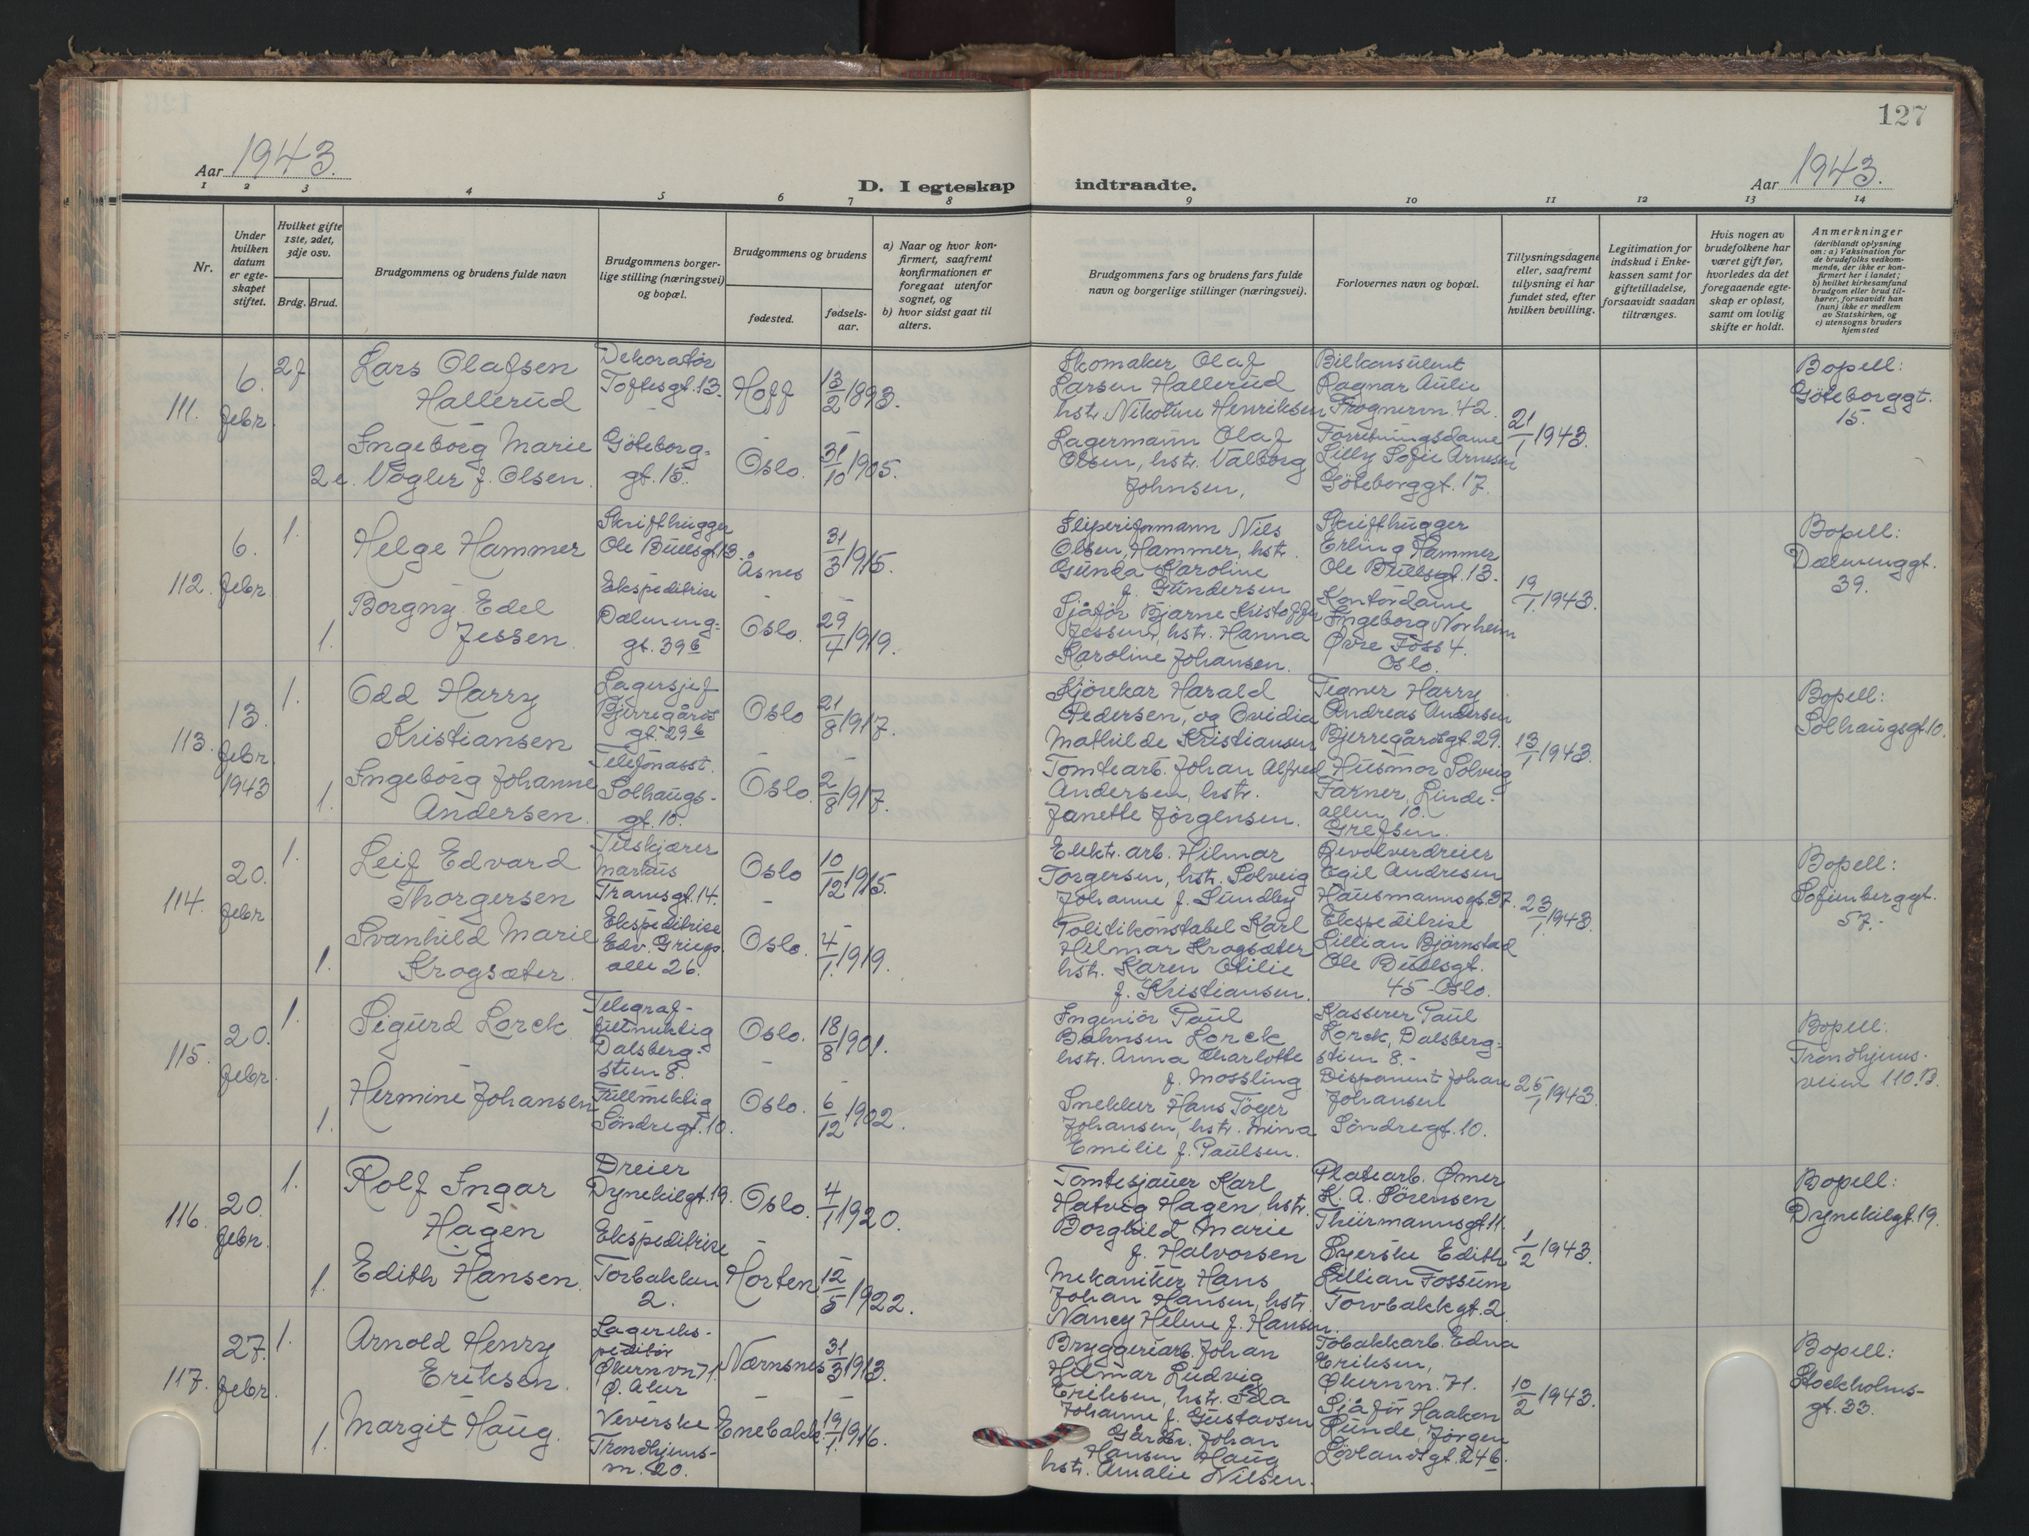 127
Aar 1943.
D. I egteskap indtraadte.
Aar 1943.
1 2 3 4 5 6 7 8 9 10 11 12 13 14
Nr.
Under hvilken datum er egteskapet stiftet.
Hvilket gifte 1ste, 2det, 3dje osv.
Brdg. Brud.
Brudgommens og brudens fulde navn
Brudgommens borgerlige stilling (næringsvei) og bopæl.
Brudgommens og brudens
fødested.
fødselsaar.
a) Naar og hvor konfirmert, saafremt konfirmationen er foregaat utenfor sognet, og
b) hvor sidst gaat til alters.
Brudgommens fars og brudens fars fulde navn og borgerlige stillinger (næringsvei).
Forlovernes navn og bopæl.
Tillysningsdagene eller, saafremt tillysning ei har fundet sted, efter hvilken bevilling.
Legitimation for indskud i Enkekassen samt for giftetilladelse, forsaavidt saadan tiltrænges.
Hvis nogen av brudefolkene har været gift før, hvorledes da det foregaaende egteskap er opløst, samt om lovlig skifte er holdt.
Anmerkninger
(deriblandt oplysning om: a) Vaksination for de brudefolks vedkommende, der ikke er konfirmert her i landet; b) hvilket kirkesamfund brudgom eller brud tilhører, forsaavidt han (hun) ikke er medlem av Statskirken, og c) utensogns bruders hjemsted
111.
6. febr.
2f
Lars Olafsen
Hallerud
Dekoratør
Toftesgt. 13.
Hoff
13/2 1893.
2e.
Ingeborg Marie
Vogler f. Olsen.
Göteborg-
gt. 15.
Oslo.
31/10 1905.
Skomaker Olaf
Larsen Hallerud
hstr. Nikoline Henriksen
Lagermann Olaf
Olsen, hstr. Valborg
Johnsen,
Bilkonsulent
Ragnar Aulie
Frognervn. 42.
Forretningsdame
Lilly Sofie Arnesen
Göteborggt. 17.
21/1 1943.
Bopell:
Göteborggt.
15.
112.
6. febr.
1.
Helge Hammer
Skrifthugger
Ole Bullsgt. 13.
Åsnes
31/3 1915.
1.
Borgny Edel
Jessen.
Ekspeditrise
Dæleneng-
gt. 39b
Oslo.
29/4 1919.
Sliperiformann Nils
Olsen, Hammer, hstr.
Gunda Karoline
f. Gundersen
Sjåfør Bjarne Kristoffer
Jessen, hstr. Hanna
Karoline Johansen.
Skrifthugger
Erling Hammer
Ole Bullsgt. 13.
Kontordame
Ingeborg Norheim
Øvre Foss 4.
Oslo.
19/1 1943.
Bopell:
Dælenenggt.
39.
113.
13. febr. 1943
1.
Odd Harry
Kristiansen
Lagersjef
Bjerregårds
gt. 29b
Oslo
21/8 1917.
1.
Ingeborg Johanne
Andersen.
Telefonasst.
Solhaugs-
gt. 10.
Oslo.
2/8 1917.
Kjørekar Harald
Pedersen, og Ovidia
Mathilde Kristiansen
Tomtearb. Johan Alfred
Andersen, hstr.
Janette Jørgensen.
Tegner Harry
Andreas Andersen
Bjerregårdsgt. 29.
Husmor Solveig
Farner, Linde-
alleen 10.
Grefsen.
13/1 1943.
Bopell:
Solhaugsgt. 10.
114.
20. febr.
1.
Leif Edvard
Thorgersen
Tilskjærer
Marcus
Tranesgt. 14.
Oslo
10/12 1915.
1.
Svanhild Marie
Krogsæter.
Ekspeditrise
Edv. Griegs
alle 26.
Oslo.
4/1 1919.
Elektr. arb. Hilmar
Torgersen, hstr. Solveig
Johanne f. Sundby
Politikonstabel Karl
Hilmar Krogsæter
hstr. Karen Otilie
f. Kristiansen.
Revolverdreier
Egil Andresen
Hausmannsgt. 37.
Ekspeditrise
Lillian Bjørnstad
Ole Bullsgt.
45 - Oslo.
23/1 1943.
Bopell:
Sofienberggt.
57.-
115.
20. febr.
1.
Sigurd Lorck
Telegraf-
fullmektig
Dalsberg-
stien 8.
Oslo.
18/8 1901.
1.
Hermine Johansen
Fullmektig
Söndregt. 10.
Oslo.
6/12 1902.
Ingeniör Paul
Bahnsen Lorck
hstr. Anna Charlotte
f. Mossling
Snekker Hans Töger
Johansen, hstr. Mina
Emilie f. Paulsen.
Kasserer Paul
Lorck, Dalsberg-
stien 8.-
Disponent Johan
Johansen
Söndregt. 10.
25/1 1943.
Bopell:
Trondhjems-
veien 110.B.
116.
20. febr.
1.
Rolf Ingar
Hagen
Dreier
Dynekilgt. 19.
Oslo.
4/1 1920.
1.
Edith Hansen.
Ekspeditrise
Torbakken
2.
Horten
12/5 1922.
Tomtesjauer Karl
Hatvig Hagen, hstr.
Borghild Marie
f. Halvorsen
Mekaniker Hans
Johan Hansen, hstr.
Nancy Helene f. Hansen.
Platearb. Ømer
K. A. Sörensen
Thurmannsgt. 11.
Syerske Edith
Lillian Fossum
Torvbakkgt. 2.
1/2 1943.
Bopell:
Dynekilgt. 19.
117.
27. febr.
1.
Arnold Henry
Eriksen.
Lagereks-
peditør
Økernvn. 71.
Ø. Aker
Nærnsnes
31/3 1913.
1.
Margit Haug.
Veverske
Trondhjems-
vn. 20.
Enebakk
19/1 1916.
Bryggeriarb. Johan
Hilmar Ludvig
Eriksen, hstr. Ida
Johanne f. Gustavsen
Gårdbr. Johan
Hansen Haug
hstr. Amalie Nilsen.
Tobakkarb. Edna
Eriksen,
Økernvn. 71.
Sjåför Haakon
Lunde, Jørgen
Løvlandsgt. 24b.
10/2 1943.
Bopell:
Stockholms-
gt. 33.